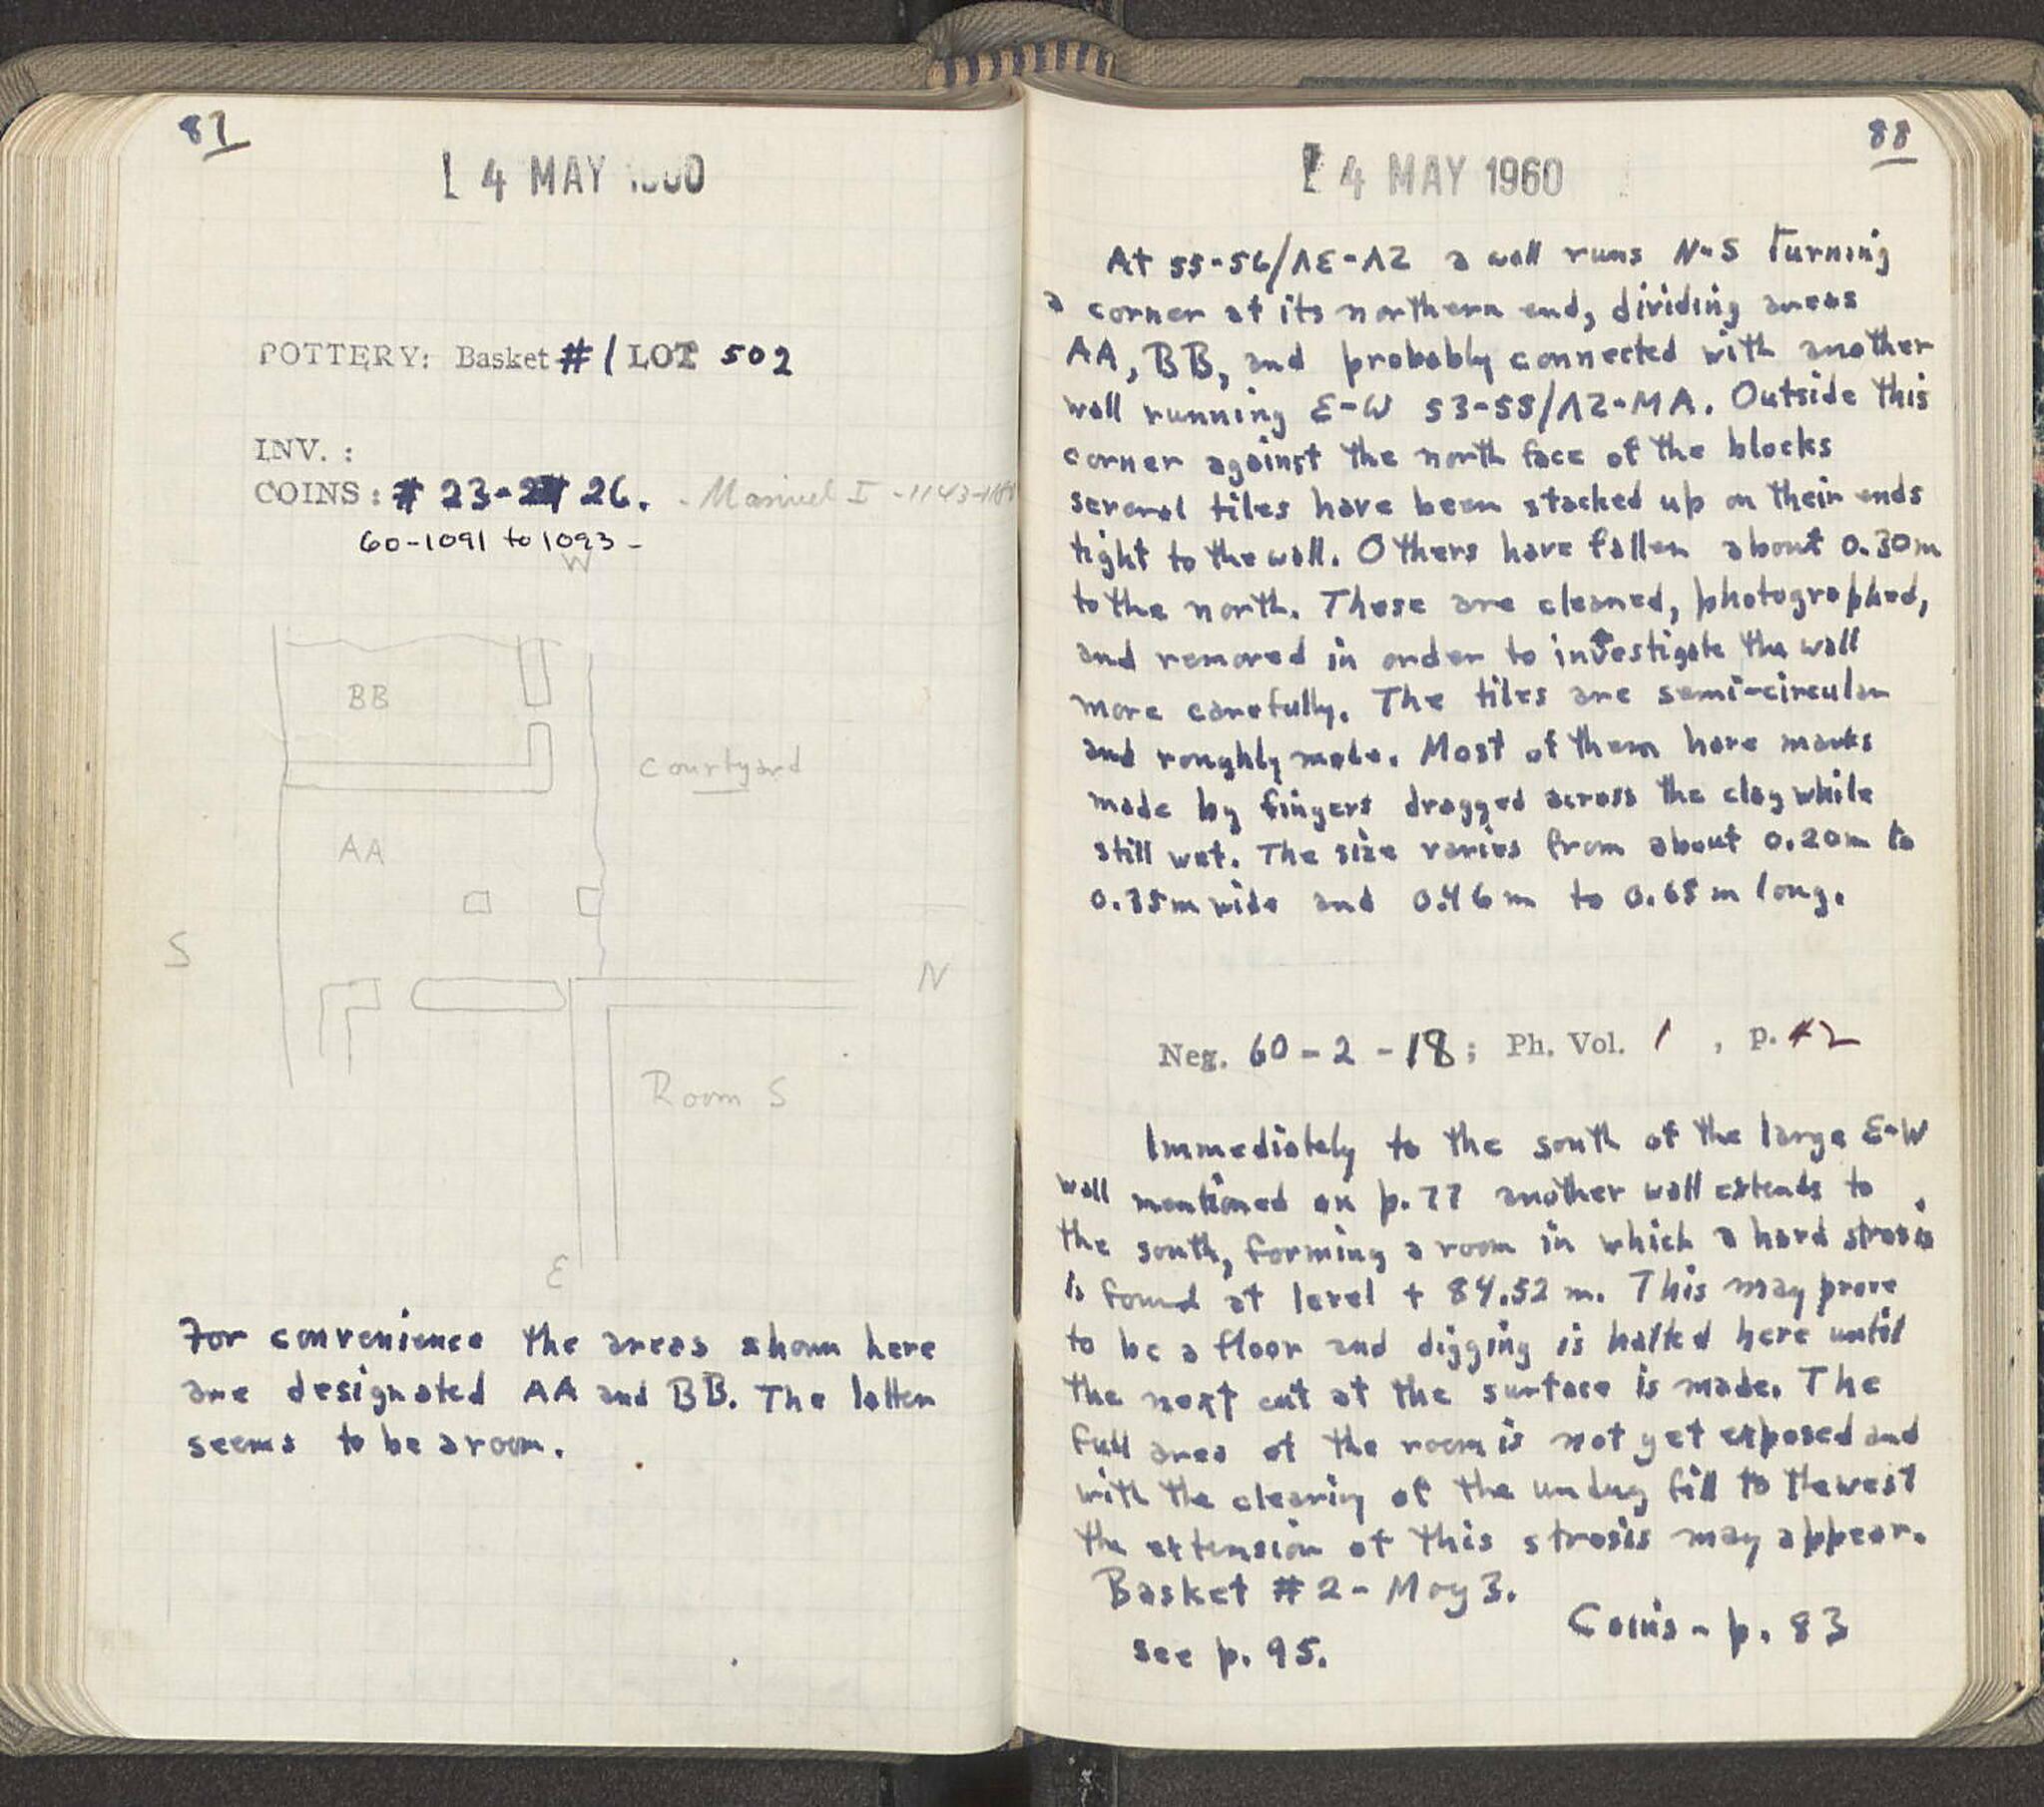 87
4 MAY 1960
POTTERY: Basket #1 LOT 502
INV. :
COINS: # 23-26. - Manuel I - 1143-1180
60-1091 to 1093 -
W
BB
Courtyard
AA
S
N
Room S
E
For convenience the areas shown here
are designated AA and BB. The latter
seems to be a room.
88
4 MAY 1960
At 55-56/ΛE-ΛZ a wall runs N-S turning
a corner at its northern end, dividing areas
AA, BB, and probably connected with another
wall running E-W 53-55/ΛZ-MA. Outside this
corner against the north face of the blocks
several tiles have been stacked up on their ends
tight to the wall. Others have fallen about 0.30m
to the north. These are cleaned, photographed,
and removed in order to investigate the wall
more carefully. The tiles are semi-circular
and roughly made. Most of them have marks
made by fingers dragged across the clay while
still wet. The size varies from about 0.20m to
0.35m wide and 0.46m to 0.65m long.
Neg. 60-2-18; Ph. Vol. 1, p. 42
Immediately to the south of the large E-W
wall mentioned on p. 77 another wall extends to
the south, forming a room in which a hard strosis
is found at level + 84.52 m. This may prove
to be a floor and digging is halted here until
the next cut at the surface is made. The
full area of the room is not yet exposed and
with the clearing of the undug fill to the west
the extension of this strosis may appear.
Basket #2 - May 3.
Coins - p. 83
see p. 95.